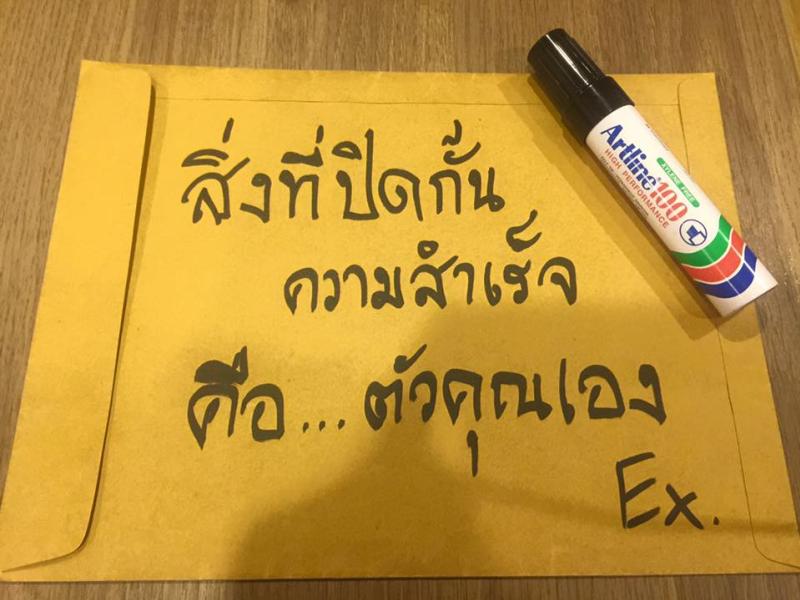 สิ่งที่ปิดกั้น
ความสำเร็จ
คือ...ตัวคุณเอง
Ex.
Artline 100
XYLENE FREE
HIGH PERFORMANCE